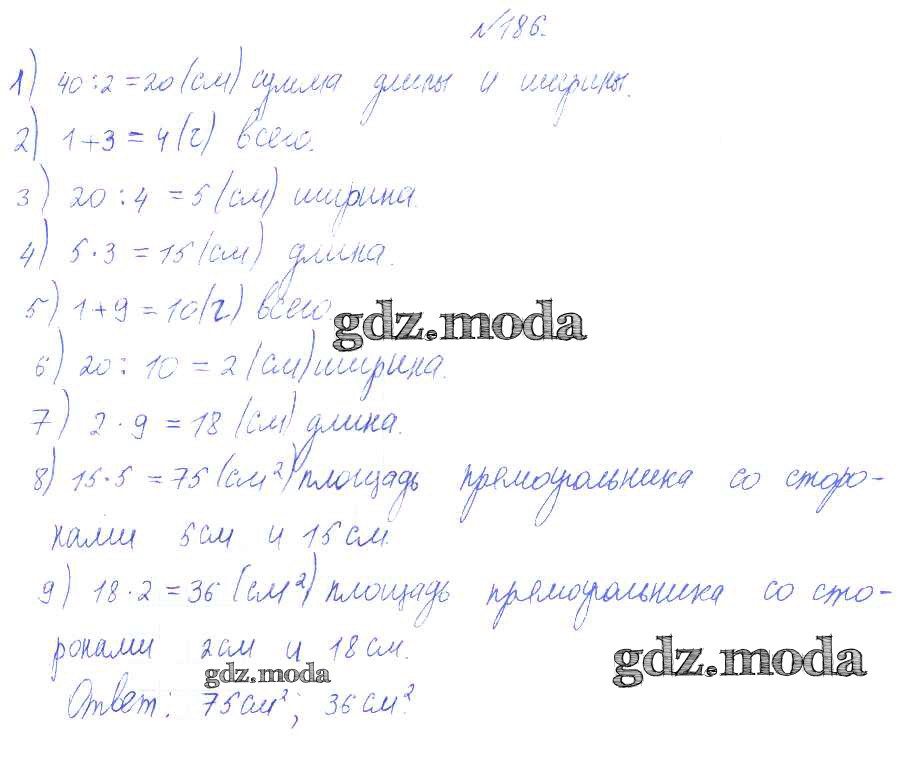 №186.
1) 40:2=20(см) сумма длины и ширины.
2) 1+3=4(г) всего.
3) 20:4=5(см) ширина.
4) 5·3=15(см) длина.
5) 1+9=10(г) всего.
gdz.moda
6) 20:10=2(см) ширина.
7) 2·9=18(см) длина.
8) 15·5=75(см²) площадь прямоугольника со сторо-
нами 5см и 15см.
9) 18·2=36(см²) площадь прямоугольника со сто-
ронами 2см и 18см.
gdz.moda
gdz.moda
Ответ: 75см²; 36см².